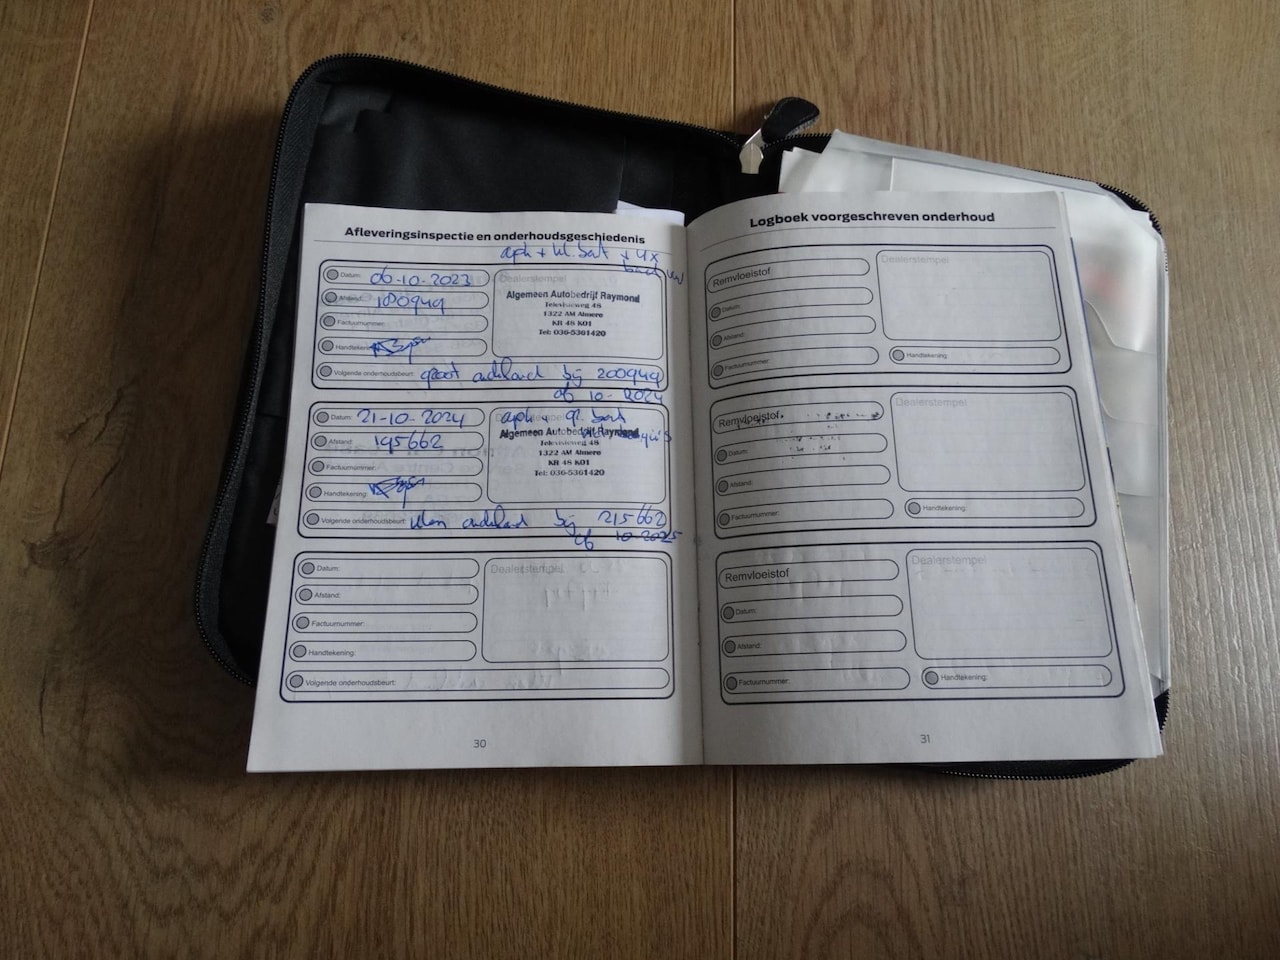 Afleveringsinspectie en onderhoudsgeschiedenis
aph + kl. beurt + 4x
Datum: 06-10-2023
Dealerstempel
Afstand: 180949
Algemeen Autobedrijf Raymond
Televisieweg 48
1322 AM Almere
KR 48 K01
Tel: 036-5361420
Factuurnummer:
Handtekening:
Volgende onderhoudsbeurt: groot onderhoud bij 200949
of 10-2024
Datum: 21-10-2024
aph + gr. beurt
Afstand: 195662
Algemeen Autobedrijf Raymond
Televisieweg 48
1322 AM Almere
KR 48 K01
Tel: 036-5361420
Factuurnummer:
Handtekening:
Volgende onderhoudsbeurt: klein onderhoud bij 215662
of 10-2025
Datum:
Dealerstempel
Afstand:
Factuurnummer:
Handtekening:
Volgende onderhoudsbeurt:
30
Logboek voorgeschreven onderhoud
Remvloeistof
Dealerstempel
Datum:
Afstand:
Factuurnummer:
Handtekening:
Remvloeistof
Dealerstempel
Datum:
Afstand:
Factuurnummer:
Handtekening:
Remvloeistof
Dealerstempel
Datum:
Afstand:
Factuurnummer:
Handtekening:
31